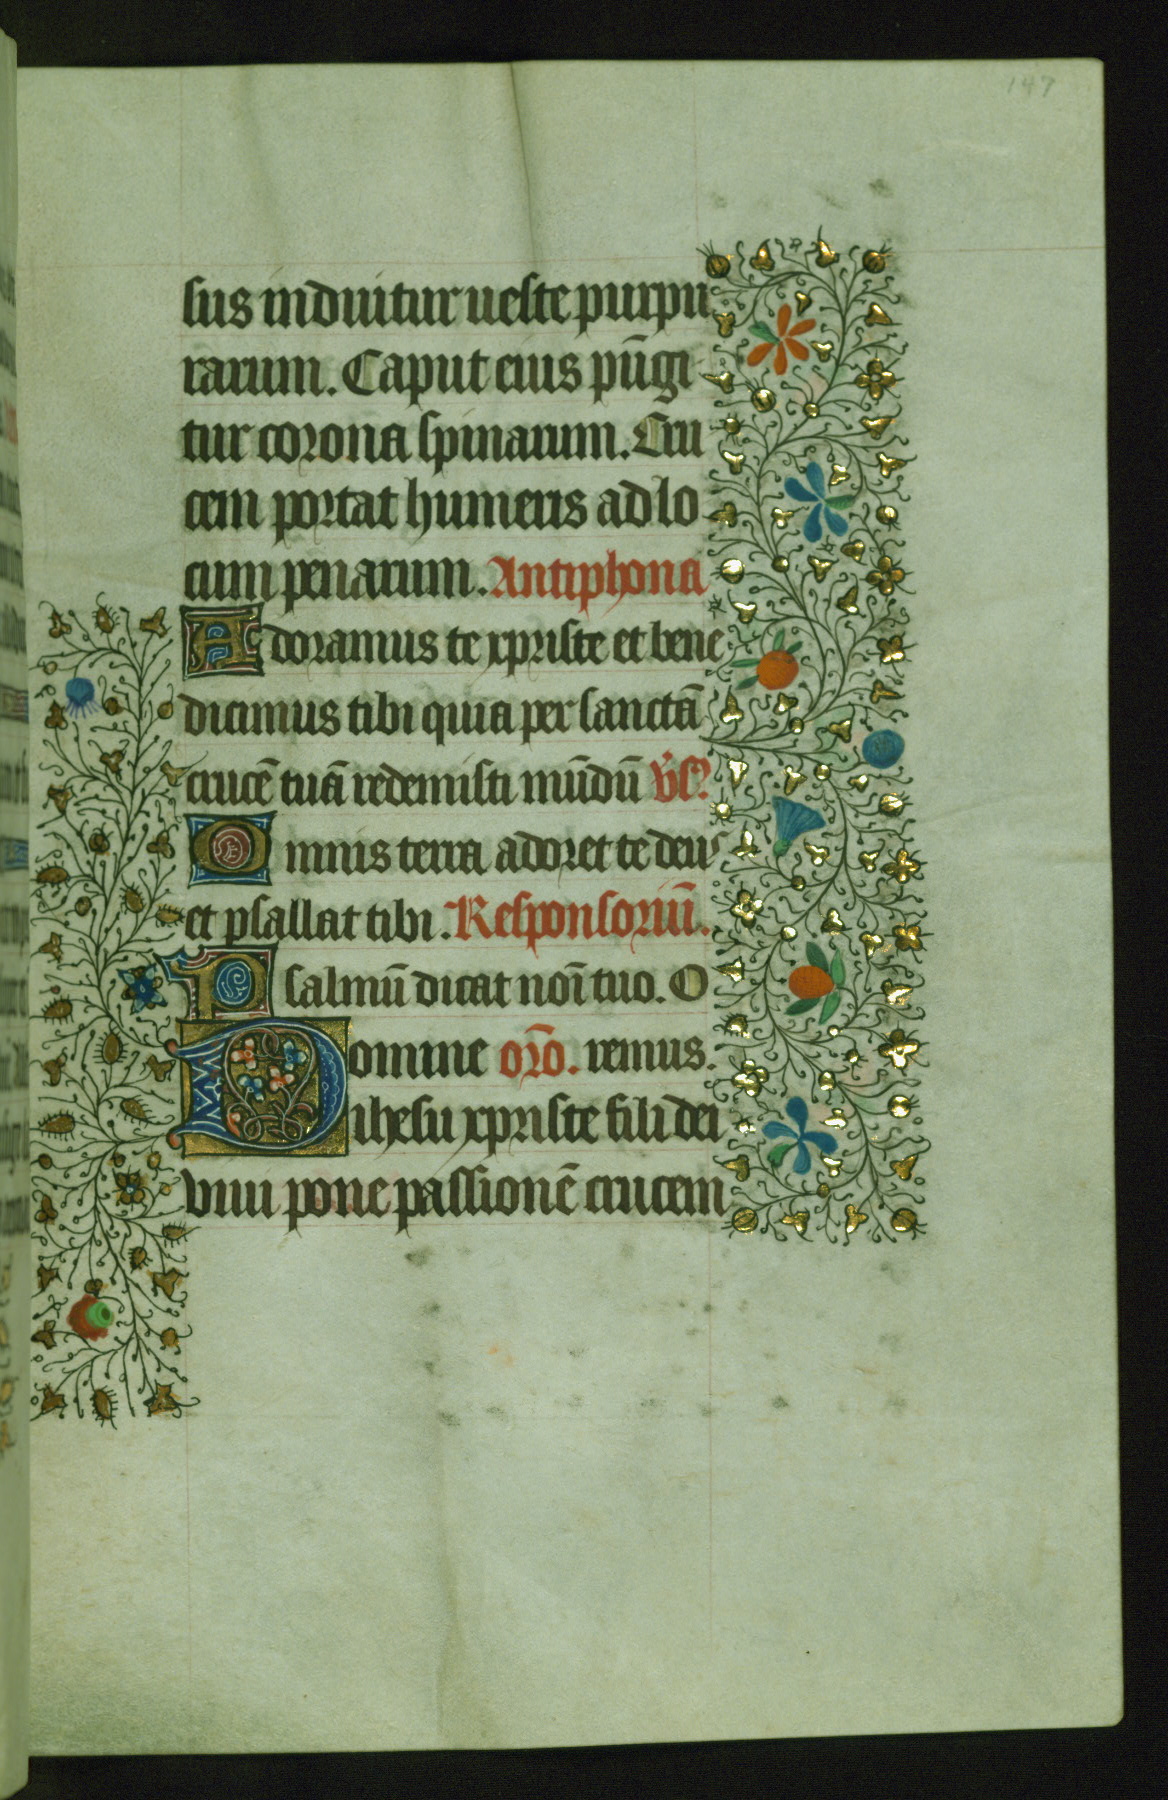 147
sus induitur ueste purpu
rarum. Caput eius pūgi
tur corona spinarum. Cru
cem portat humeris ad lo
cum penarum. Antiphona
Adoramus te xpriste et bene
dicimus tibi quia per sanctā
crucē tuā redemisti mūdū v̄s
Omnis terra adoret te deus
et psallat tibi. Responsoriū.
Psalmū dicat noī tuo. O
Domine orō. remus.
ihesu xpriste fili dei
viui pone passionē crucem